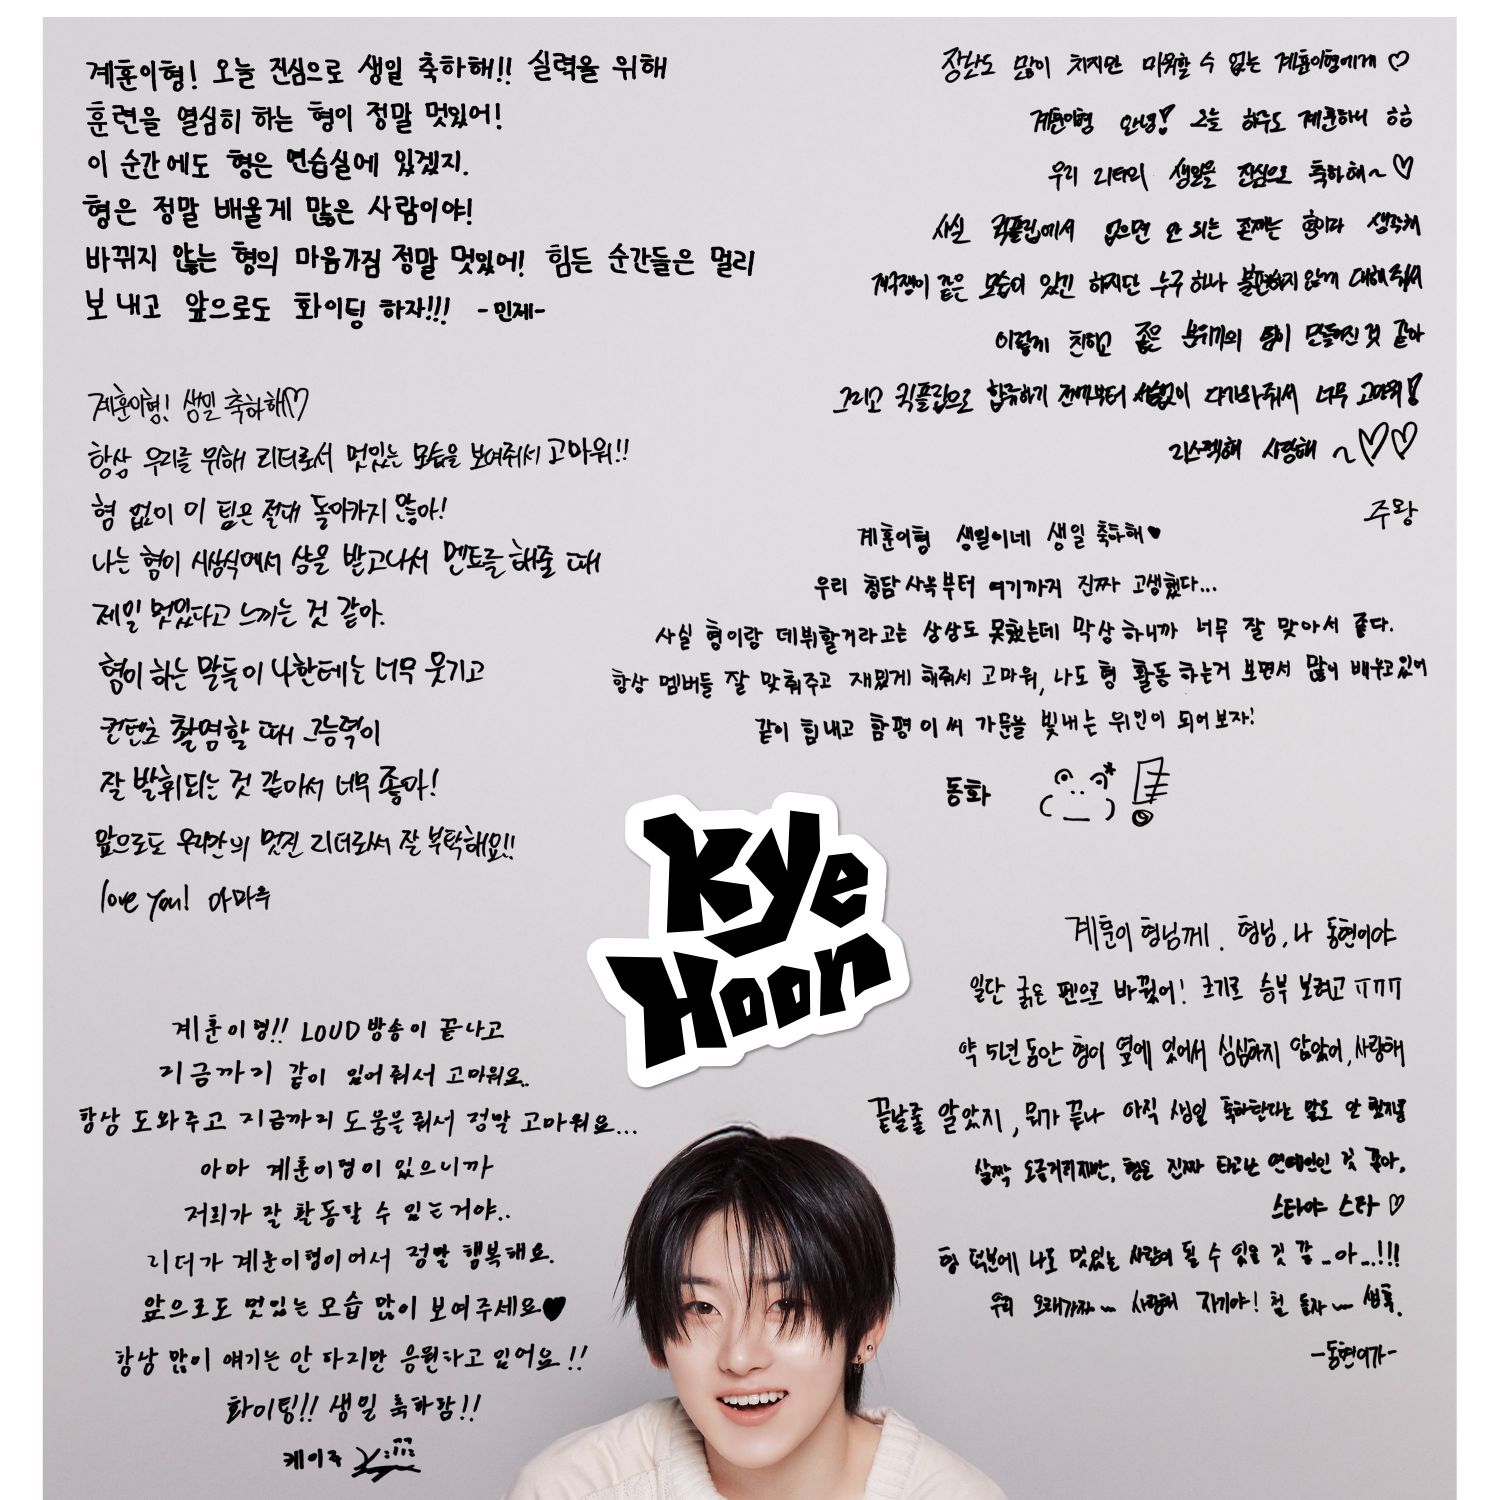 계훈이형! 오늘 진심으로 생일 축하해!! 실력을 위해
훈련을 열심히 하는 형이 정말 멋있어!
이 순간에도 형은 연습실에 있겠지.
형은 정말 배울게 많은 사람이야!
바뀌지 않는 형의 마음가짐 정말 멋있어! 힘든 순간들은 멀리
보내고 앞으로도 화이팅 하자!!! -민제-
장난도 많이 치지만 미워할 수 없는 계훈이형에게 ♡
계훈이형 안녕! 오늘 하루도 계훈하니 ㅎㅎ
우리 리더의 생일을 진심으로 축하해~♡
사실 킥플립에서 없으면 안 되는 존재는 형이라 생각해
개구쟁이 같은 모습이 있긴 하지만 누구 하나 불편하지 않게 대해줘서
이렇게 친하고 좋은 분위기의 팀이 만들어진 것 같아
그리고 킥플립으로 합류하기 전부터 서슴없이 다가와줘서 너무 고마워!
리스펙해 사랑해 ~♡♡
주왕
계훈이형! 생일 축하해♡
항상 우리를 위해 리더로서 멋있는 모습을 보여줘서 고마워!!
형 없이 이 팀은 절대 돌아가지 않아!
나는 형이 시상식에서 상을 받고나서 멘트를 해줄 때
제일 멋있다고 느끼는 것 같아.
형이 하는 말들이 나한테는 너무 웃기고
컨텐츠 촬영할 때 그 능력이
잘 발휘되는 것 같아서 너무 좋아!
앞으로도 우리만의 멋진 리더로써 잘 부탁해요!!
love you! 아마루
계훈이형 생일이네 생일 축하해♥
우리 청담사옥부터 여기까지 진짜 고생했다...
사실 형이랑 데뷔할거라고는 상상도 못했는데 막상 하니까 너무 잘 맞아서 좋다.
항상 멤버들 잘 맞춰주고 재밌게 해줘서 고마워, 나도 형 활동 하는거 보면서 많이 배우고 있어
같이 힘내고 함평 이씨 가문을 빛내는 위인이 되어보자!
동화
Kye
Hoon
계훈이 형님께. 형님, 나 동현이야
일단 굵은 펜으로 바꿨어! 크기로 승부 보려고 ㅠㅠㅠ
약 5년 동안 형이 옆에 있어서 심심하지 않았어, 사랑해
끝날줄 알았지, 뭐가 끝나 아직 생일 축하한다는 말도 안 했지롱
살짝 오글거리지만, 형은 진짜 타고난 연예인인 것 같아.
스타야 스타 ♡
형 덕분에 나도 멋있는 사람이 될 수 있을 것 같..아..!!!
우리 오래가자~ 사랑해 자기야! 철 들자~ 생축.
-동현이가-
계훈이형!! LOUD 방송이 끝나고
지금까지 같이 있어줘서 고마워요..
항상 도와주고 지금까지 도움을 줘서 정말 고마워요...
아마 계훈이형이 있으니까
저희가 잘 활동할 수 있는거야..
리더가 계훈이형이어서 정말 행복해요.
앞으로도 멋있는 모습 많이 보여주세요♥
항상 많이 얘기는 안 하지만 응원하고 있어요!!
화이팅!! 생일 축하함!!
케이주